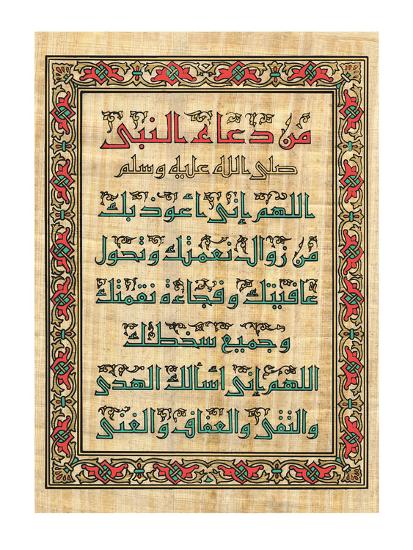 من دعاء النبى
صلى الله عليه وسلم
اللهم إنى أعوذ بك
من زوال نعمتك وتحول
عافيتك وفجاءة نقمتك
وجميع سخطك
اللهم إنى أسألك الهدى
والتقى والعفاف والغنى